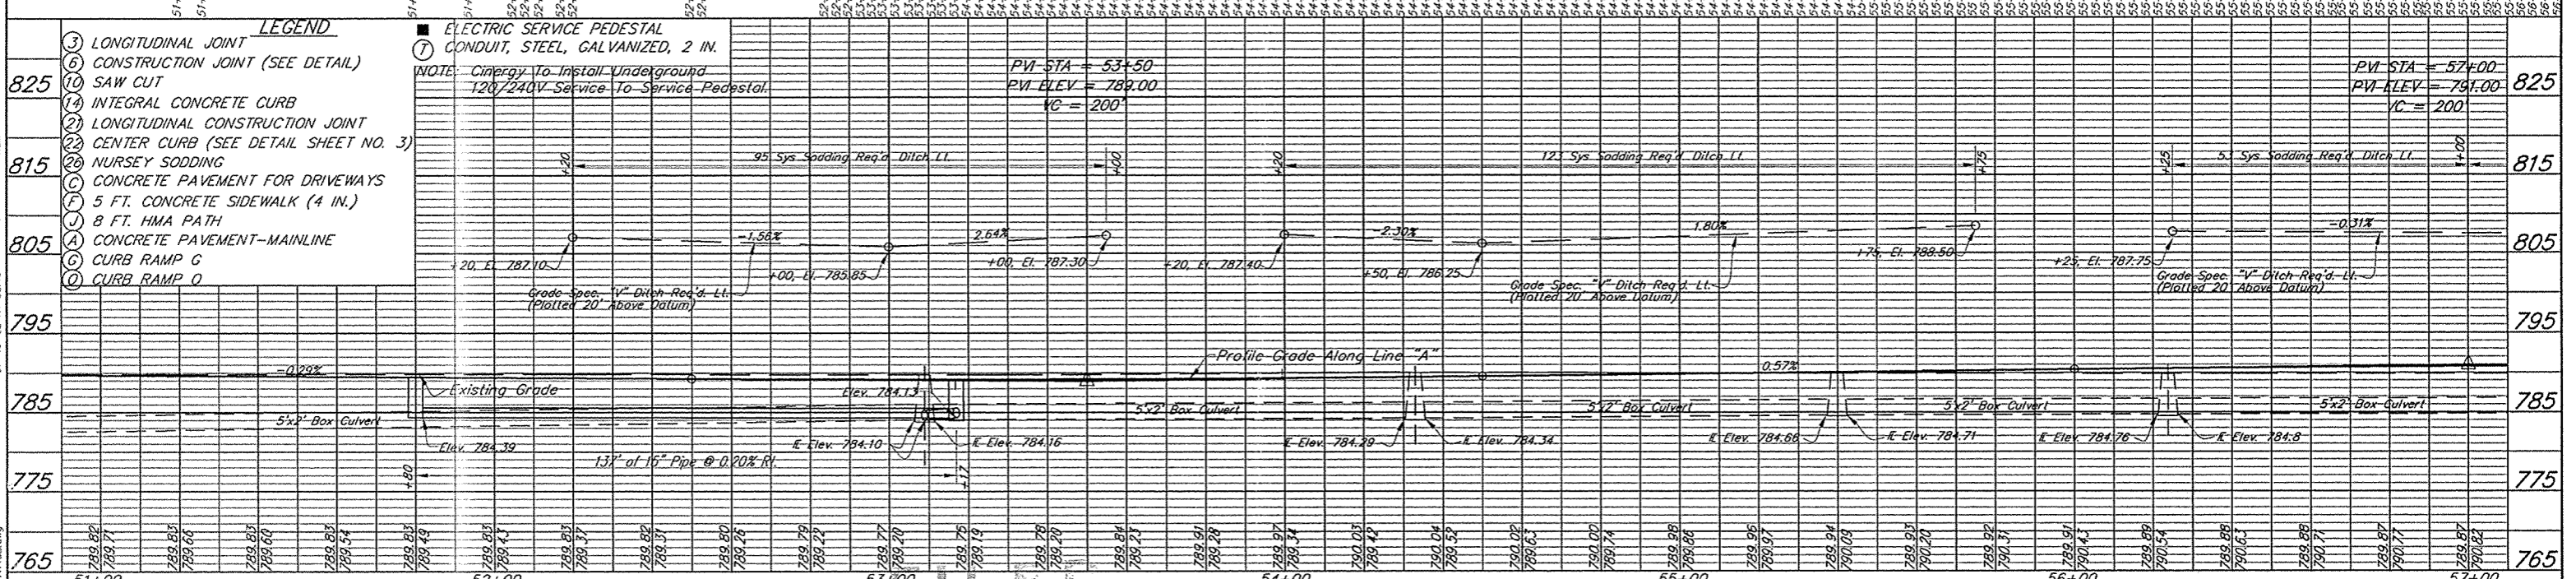 LEGEND
3 LONGITUDINAL JOINT
6 CONSTRUCTION JOINT (SEE DETAIL)
10 SAW CUT
14 INTEGRAL CONCRETE CURB
21 LONGITUDINAL CONSTRUCTION JOINT
22 CENTER CURB (SEE DETAIL SHEET NO. 3)
26 NURSEY SODDING
C CONCRETE PAVEMENT FOR DRIVEWAYS
F 5 FT. CONCRETE SIDEWALK (4 IN.)
J 8 FT. HMA PATH
A CONCRETE PAVEMENT-MAINLINE
G CURB RAMP G
O CURB RAMP O
ELECTRIC SERVICE PEDESTAL
T CONDUIT, STEEL, GALVANIZED, 2 IN.
NOTE: Cinergy To Install Underground
120/240V Service To Service Pedestal.
PVI STA = 53+50
PVI ELEV = 789.00
VC = 200'
PVI STA = 57+00
PVI ELEV = 791.00
VC = 200'
825 825
815 815
805 805
795 795
785 785
775 775
765 765
+20 95 Sys Sodding Req'd Ditch Lt. +00
+20 123 Sys Sodding Req'd Ditch Lt. +75
+25 53 Sys Sodding Req'd Ditch Lt. +00
-1.56% 2.64% -2.30% 1.80% -0.31%
+20, El. 787.10
+00, El. 785.85
+00, El. 787.30
+20, El. 787.40
+50, El. 786.25
+75, El. 788.50
+25, El. 787.75
Grade Spec. "V" Ditch Req'd. Lt.
(Plotted 20' Above Datum)
Grade Spec. "V" Ditch Req'd. Lt.
(Plotted 20' Above Datum)
Grade Spec. "V" Ditch Req'd. Lt.
(Plotted 20' Above Datum)
-0.29%
Profile Grade Along Line "A"
0.57%
Existing Grade
Elev. 784.13
5'x2' Box Culvert
5'x2' Box Culvert
5'x2' Box Culvert
5'x2' Box Culvert
5'x2' Box Culvert
Elev. 784.39
Elev. 784.10
Elev. 784.16
Elev. 784.29
Elev. 784.34
Elev. 784.66
Elev. 784.71
Elev. 784.76
Elev. 784.8
137' of 15" Pipe @ 0.20% Rt.
+80 +17
789.82 789.71
789.83 789.66
789.83 789.60
789.83 789.54
789.83 789.49
789.83 789.43
789.83 789.37
789.82 789.31
789.80 789.26
789.79 789.22
789.77 789.20
789.75 789.19
789.78 789.20
789.84 789.23
789.91 789.28
789.97 789.34
790.03 789.42
790.04 789.52
790.02 789.63
790.00 789.74
789.98 789.86
789.96 789.97
789.94 790.09
789.93 790.20
789.92 790.31
789.91 790.43
789.89 790.54
789.88 790.63
789.88 790.71
789.87 790.77
789.87 790.82
51+00 52+00 53+00 54+00 55+00 56+00 57+00